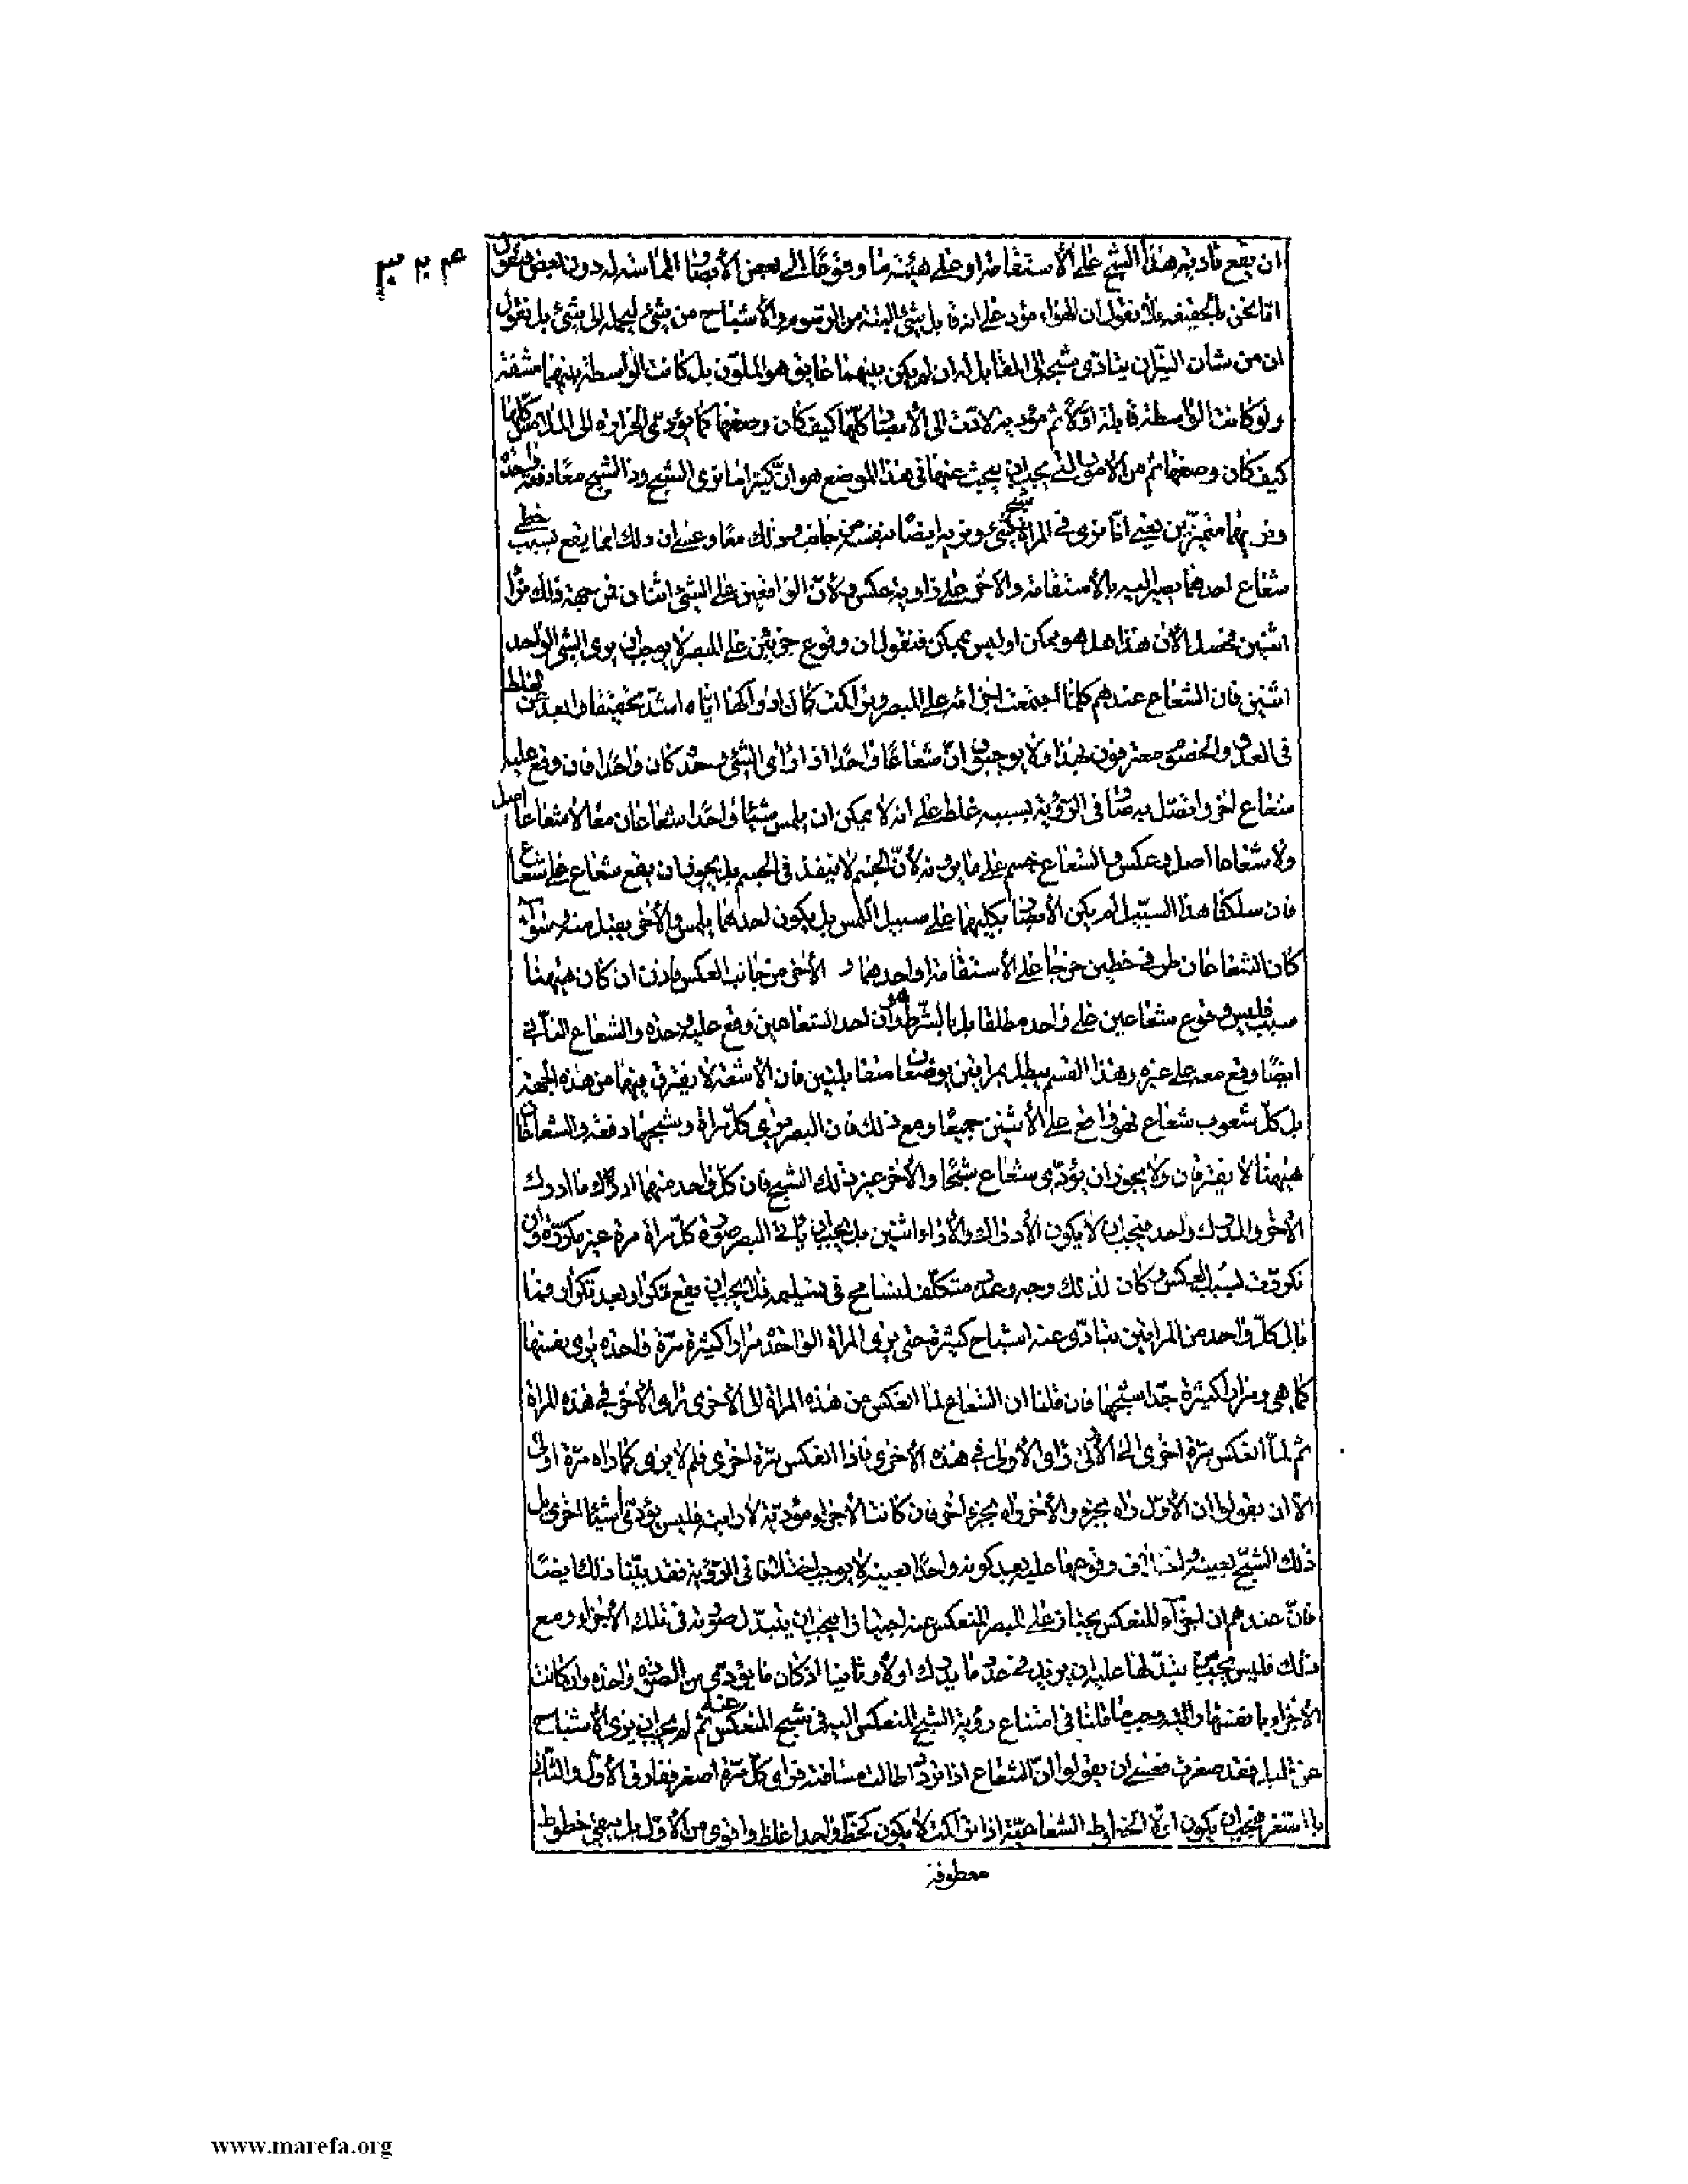 ٣٢٤
ان يقع تأدية هذا الشبح على الأستقامة او على هيئة ما وقوعًا الى بعض الأبصار المماسة له دون بعض فنقول
امّا نحن بالحقيقة فلا نقول ان الهواء مؤد على انه قابل شئ البتة من الرسوم والأشباح من شئ ليحمله الى شئ بل نقول
ان من شأن النيّر ان يتأدّى شبحه الى المقابل له ان لم يكن بينهما عايق هو الملوّن بل كانت الواسطة بينهما مشفة
ولو كانت الواسطة قابلة اوّلا ثم مؤدية لادّت الى الأبصار كلّها كيف كان وضعها كما يؤدّى الحرارة الى الملامس كلّها
كيف كان وضعها ثم من الأمور التى يجب ان يبحث عنها فى هذا الموضع هو انّ كثيرًا ما نرى الشبح وذا الشبح معًا دفعة واحدة
ونريهما متميّزين يعنى انّا نرى فى المرآة شبح شئ ونريه ايضًا بنفسه من جانب وذلك معًا وعسى ان ذلك انما يقع بسبب خطى
شعاع احدهما يصير اليه بالأستقامة والاخر على زاوية عكس ولأنّ الواقعين على الشئ اثنان فمن جهة ذلك نراه
اثنين فنحصل الآن هذا هل هو ممكن او ليس بممكن فنقول ان وقوع جزئين على المبصر لا يوجب ان يرى الشئ الواحد
اثنين فان الشعاع عندهم كلما اجتمعت اجزائه على المبصر وتراكمت كان ادراكها ايّاه اشدّ تحقيقا وابعد عن الغلط
فى العدد والخصوص معترفون بهذا ولا يوجبون انّ شعاعًا واحدًا اذا رأى الشئ وحده كان واحدًا فان وقع عليه
شعاع اخر واتصل به صار فى الرؤية بسببه غلط على انه لا يمكن ان يلمس شيئا واحدًا شعاعان معًا لا شعاعا اصل
ولا شعاعا اصل وعكس والشعاع جسم على ما يرونه لأنّ الجسم لا ينفذ فى الجسم بل يجوز ان يقع شعاع على شعاع
فان سلكنا هذا السبيل لم يكن الأبصار بكليهما على سبيل اللمس بل يكون احدهما يلمس والأخر يقبل منه وسواء
كان الشعاعان طرفى خطين خرجا على الأستقامة او احدهما و الأخر من جانب العكس فاذن ان كان هيهنا
سبب فليس وقوع شعاعين على واحد مطلقا بل بالشرط هو ان احد الشعاعين وقع عليه وحده والشعاع الثانى
ايضًا وقع معه على غيره وهذا القسم يبطل بمرآتين يوضعان متقابلتين فان الأشعة لا يفترق فيها من هذه الجهة
بل كلّ شعوب شعاع فهو واقع على الأثنين جميعًا ومع ذلك فان البصر يرى كلّ مرآة وشبحها دفعة والشعاعان
هيهنا لا يفترقان ولا يجوز ان يؤدّى شعاع شبحًا والأخر غير ذلك الشبح فان كلّ واحد منهما ادرك ما ادرك
الأخر والمدرك واحد فيجب ان لا يكون الأدراك والأداء اثنين بل يجب ان يأتى البصر صورة كلّ مرآة مرة غير مكرّرة وان
تكرّرت بسبب العكس وكان لذلك وجه وعذر متكلّف لنسامح فى تسليمه فلا يجب ان يقع تكرار بعد تكرار وما
بال كلّ واحد من المرآتين يتأدّى عنه اشباح كثيرة حتى يرى المرآة الواحدة مرارا كثيرة مرّة واحدة يرى بنفسها
كما هى ومرارا كثيرة جّدا شبحها فان قلنا ان الشعاع لما انعكس من هذه المرآة الى الأخرى رأى الأخرى فى هذه المرآة
ثم لمّا انعكس مرّة اخرى الى الأولى رأى الأولى فى هذه الأخرى فاذا انعكس مرّة اخرى فلم لا يرى كما رآه مرّة اولى
الّا ان يقولوا ان الأول رآه بجزء والأخر رآه بجزء اخر فان كانت الأجزاء مؤدية لا رائية فليس يؤدّى شيئًا اخرى بل
ذلك الشبح بعينه واختلاف وقوعها عليه بعد كونه واحدًا بعينه لا يوجب اختلافًا فى الرؤية فقد بيّنا ذلك ايضًا
فانّ عندهم ان اجزاء المنعكس يجتاز على المبصر المنعكس عنه اجتيازا فيجب ان يتبدّل صورته فى تلك الأجزاء ومع
ذلك فليس يجب من تبدّلها عليه ان يزيد فى عدد ما يدرك اولا وثانيا اذ كان ما يؤدّى من الصورة واحدة وان كانت
الأجزاء بانفسها رائية وجب ما قلنا فى امتناع رؤية الشبح المنعكس اليه فى شبح المنعكس عنه ثم لم يجب ان يرى الأشباح
عن قليل فقد صغرت فعسى ان يقولوا انّ الشعاع اذا تردّد طالت مسافته فرأى كلّ مرّة اصغر ففارق الأوّل والثانى
بالصغر فيجب ان يكون اوّلا الخطوط الشعاعيّة اذا تراكمت لا يكون كخط واحد اغلظ واقوى من الأوّل بل يبقى خطوط
معطوفة
www.marefa.org